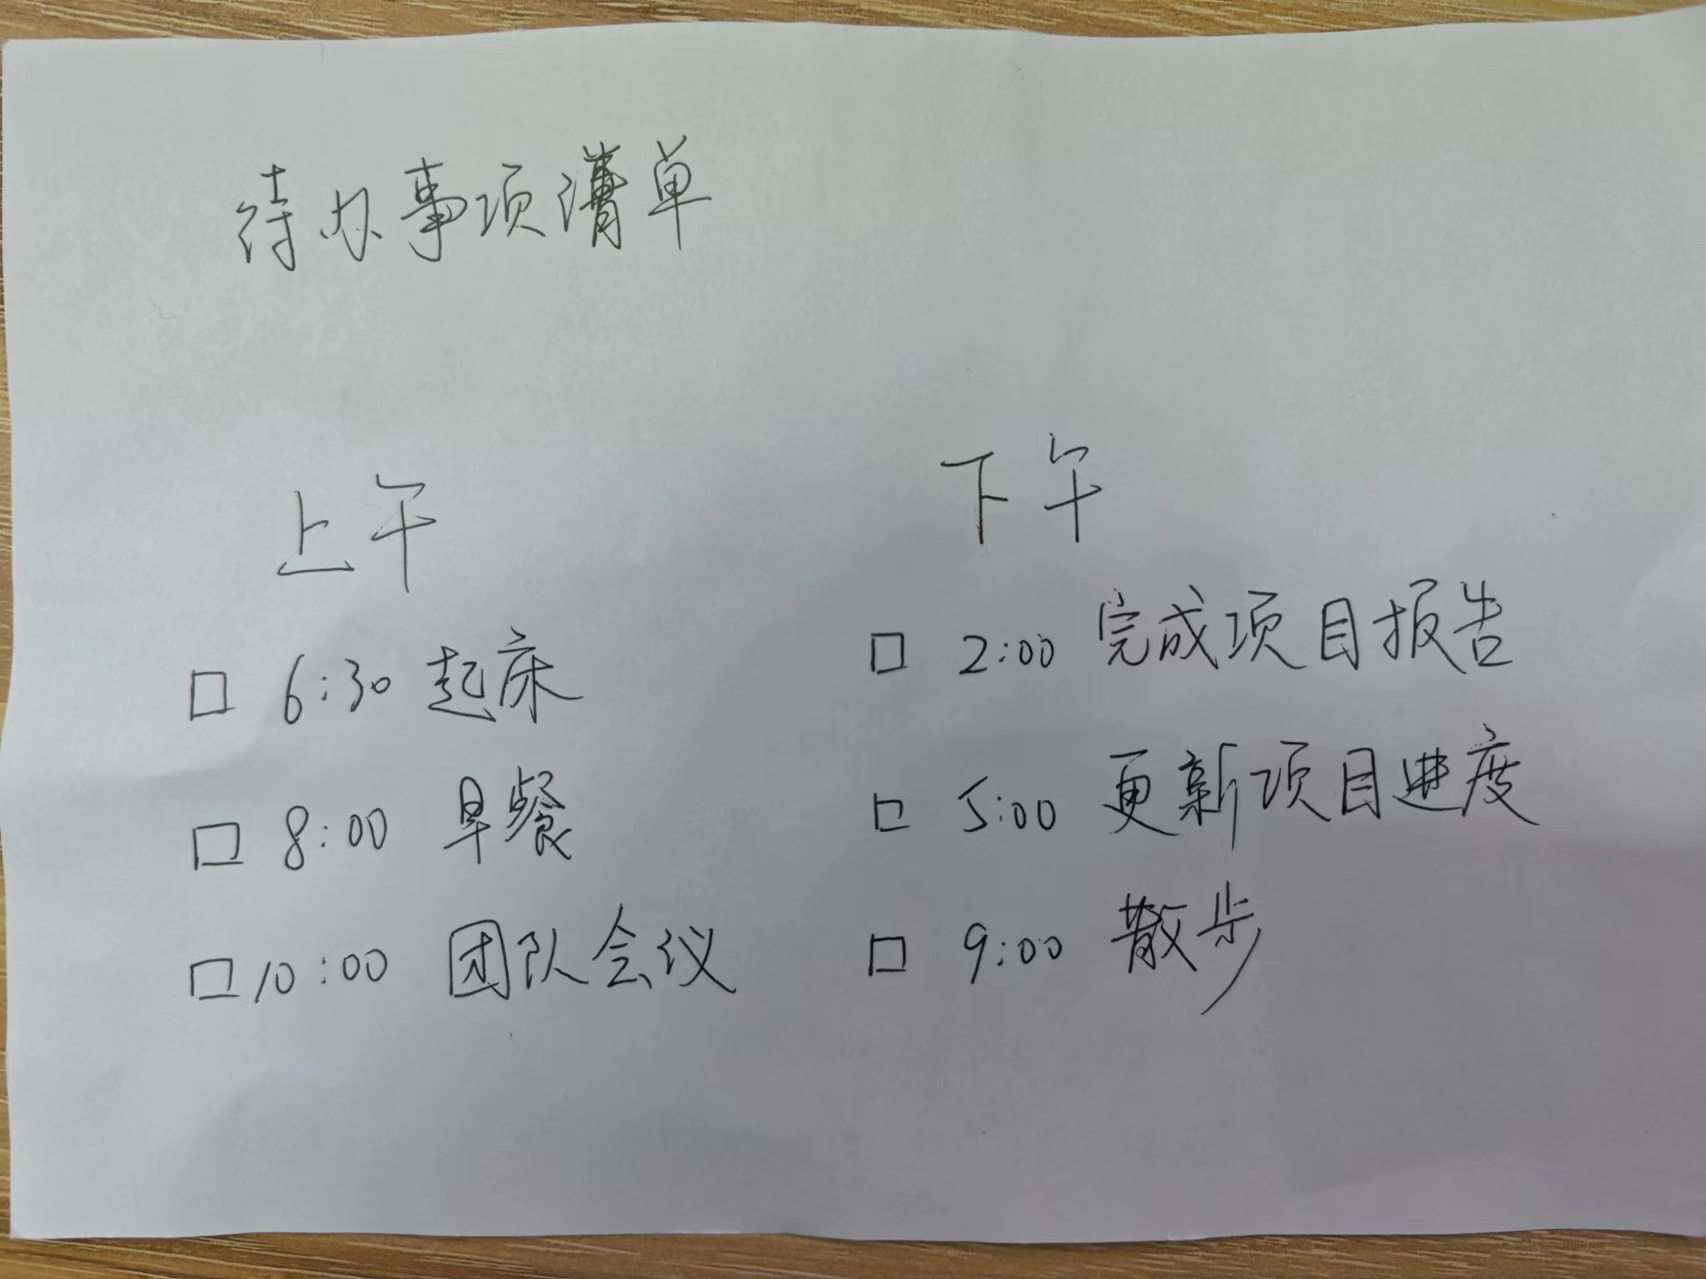 待办事项清单
上午
□ 6:30 起床
□ 8:00 早餐
□ 10:00 团队会议
下午
□ 2:00 完成项目报告
□ 5:00 更新项目进度
□ 9:00 散步